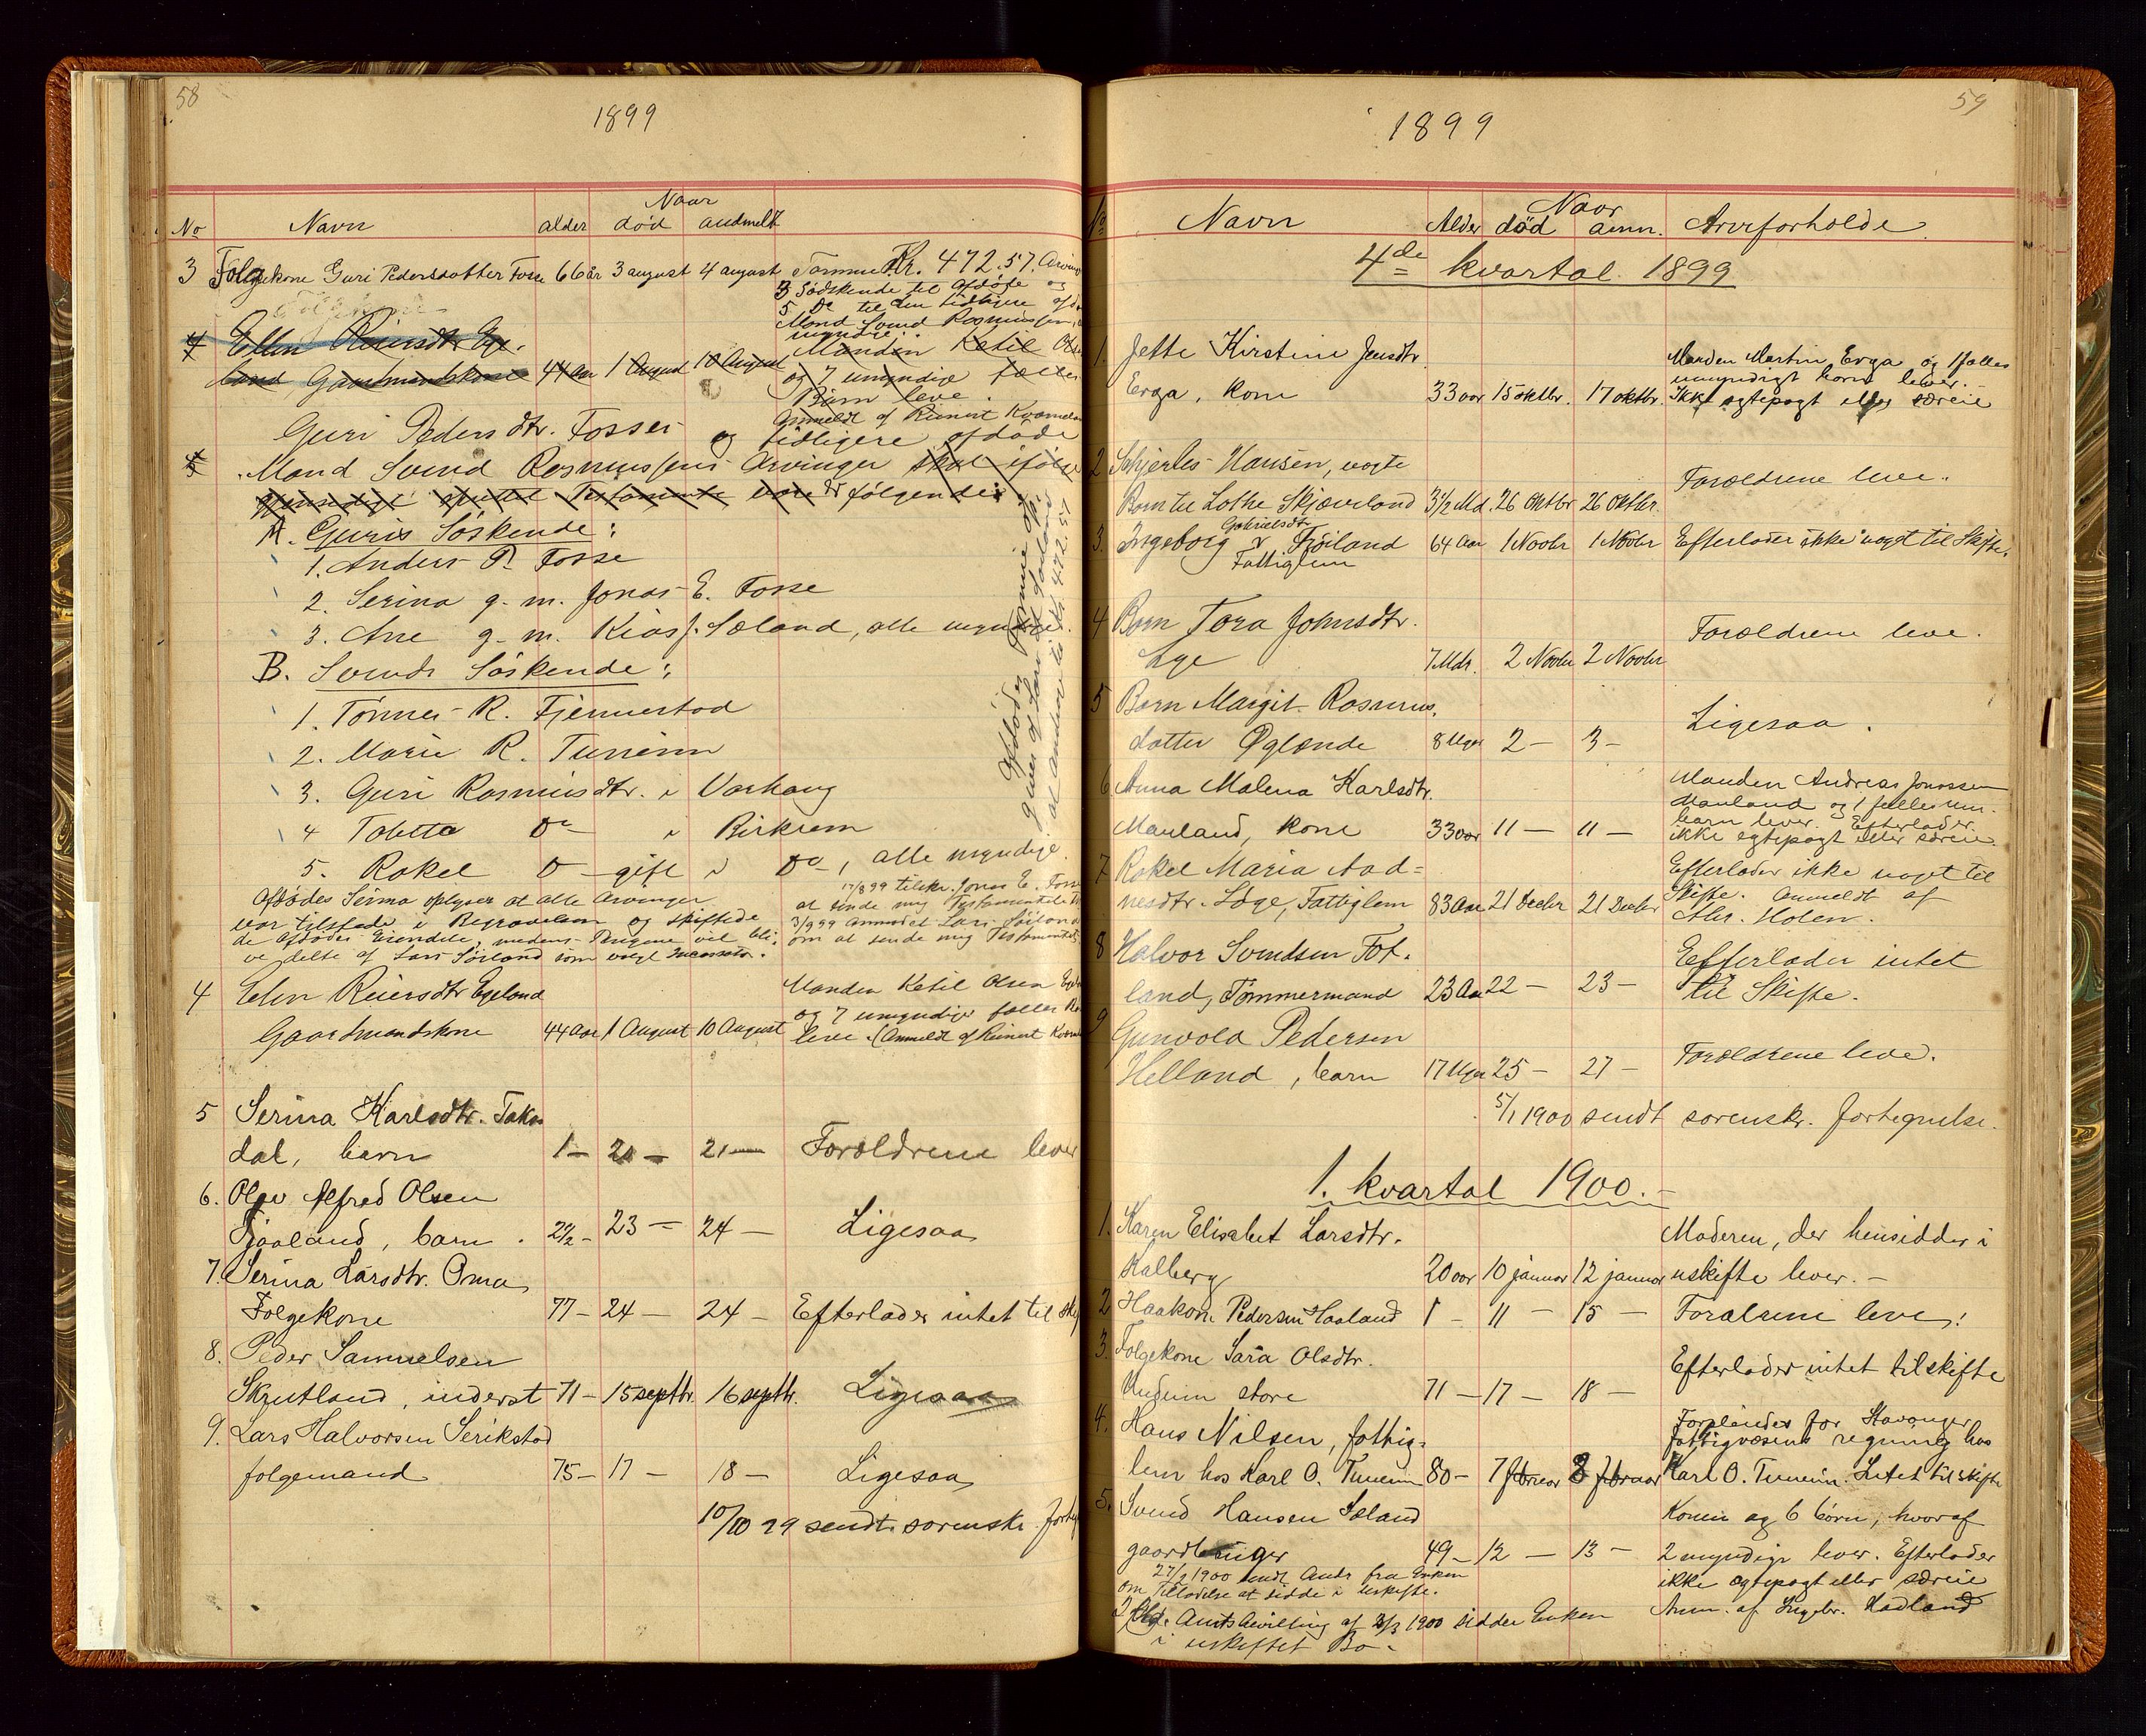 58
1899
Naar
No Navn alder død andmelt
3 Følgekone Guri Pedersdatter Fosse 66 år 3 august 4 august Formue Kr. 472.57. Arvin
3 Sødskende til Afdøde og
5 Do til den tidligere afdø
Mand Svend Rasmussen,
myndige.
4 Ellen Reiersdtr Ege-
land Gaardmandskone 44 Aar 1 August 10 August Manden Ketil Olse
og 7 umyndige fælles
Børn leve.
Anmeldt af Reinert Kvamela
Guri Pedersdtr. Fosses og tidligere afdøde
Mand Svend Rasmussens Arvinger skal ifølge
gjensidigt oprettet Testamente være er følgende:
A. Guris Søskende:
1. Anders P. Fosse
2. Serina g. m. Jonas E. Fosse
3. Ane g. m. Kias J. Sæland, alle myndige.
B. Svends Søskende:
1. Tønnes R. Fjermestad
2. Marie R. Tunheim
3. Guri Rasmusdtr. i Varhaug
4 Tobetta Do i Birkrem
5. Rakel D - gift i Do, alle myndige.
Afdødes Formue op-
giver af Lars Sørland
at andrage til Kr. 472.57
Afdødes Serina oplyser at alle Arvinger
var tilstede i Begravelsen og skiftede
de Afdødes Eiendele, medens Pengene vil bli-
ve delte af Lars Sørland som valgt Incassator.
17/8 99 tilskr. Jonas E. Fosse
at sende mig Testamentet
3/9 99 anmodet Lars Sørland
om at sende mig Testamentet
4 Elen Reiersdtr Egeland Manden Ketil Olsen Ege
Gaardmandskone 44 Aar 1 August 10 August og 7 umyndige fælles Bø
leve. (Anmeldt af Reinert Kvam
5 Serina Karlsdtr. Taks-
dal, barn 1 - 20 - 21 - Forældrene lever
6. Olav Alfred Olsen
Tjaaland, barn. 2 1/2 - 23 - 24 - Ligesaa
7. Serina Larsdtr. Oma
Følgekone 77 - 24 - 24 - Efterlader intet til skif
8. Peder Samuelsen
Skrutland, inderst 71 - 15 septbr. 16 septbr. Ligesaa
9. Lars Halvorsen Serikstad
følgemand 75 - 17 - 18 - Ligesaa
10/10 99 sendt sorenskr. forteg
59
1899
Naar
No Navn Alder død anm. Arveforholde
4de kvartal 1899
1. Jette Kirstine Jensdtr. Manden Martin Erga og 1 fælles
umyndigt barn lever.
Erga, kone 33 aar 15 oktbr. 17 oktbr. Ikke egtepagt eller særeie
2 Schjerles Hansen, uægte
Barn til Lothe Skjæveland 3 1/2 Md. 26 Oktbr 26 Oktbr. Forældrene leve.
3. Ingeborg Gabrielsdtr Frøiland 64 Aar 1 Novbr 1 Novbr Efterlader ikke noget til Skifte.
Fattiglem
4 Barn Tora Johnsdtr. Forældrene leve.
Lye 7 Mdr. 2 Novbr 2 Novbr
5 Barn Margit Rasmus-
datter Øglænde 8 Uger 2 - 3 - Ligesaa.
6 Anna Malena Karlsdtr. Manden Andreas Jonassen
Mauland og 1 fælles um.
Mauland, kone 33 aar 11 - 11 - barn lever. Efterlader
ikke egtepagt eller særeie.
7 Rakel Maria Aad- Efterlader ikke noget til
nesdtr. LØge, Fattiglem 83 Aar 21 Decbr 21 Decbr Skifte. Anmeldt af
Abr. Holen.
8 Halvor Svendsen Fot- Efterlader intet
land, Tømmermand 23 Aar 22 - 23 - til Skifte.
9 Gunvold Pedersen
Helland, barn 17 Uger 25 - 27 - Forældrene leve.
5/1 1900 sendt sorenskr. fortegnelse.
1. kvartal 1900.-
1. Karen Elisabet Larsdtr. Moderen, der hensidder i
Kalberg 20 aar 10 januar 12 januar uskifte lever. -
2 Haakon Pedersen Haaland 1 - 11 - 15 - Forældrene leve.
3. Følgekone Sara Olsdtr.
Undeim store 71 - 17 - 18 - Efterlader intet til skifte
4. Hans Nilsen, fattig- Forpleiedes for Stavanger
fattigvæsens regning hos
lem hos Karl O. Tuneim 80 - 7 februar 8 februar Karl O. Tuneim. Intet til skifte
5. Svend Hansen Sæland Konen og 6 børn, hvoraf
gaardbruger 49 - 12 - 13 - 2 myndige lever. Efterlader
27/2 1900 sendt Amts fra Enken
om Tilladelse at sidde i uskifte. ikke egtepagt eller særeie
Ifølge Amtsbevilling af 3/3 1900 sidder Enken Anm. af Ingebr. Hadland
i uskiftet Bo.